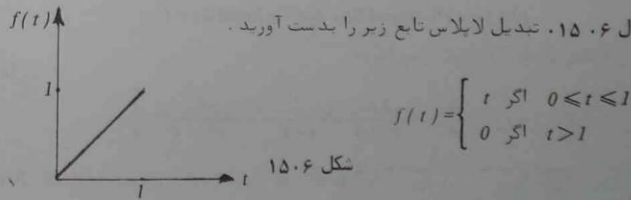 ل ۱۵.۶. تبدیل لاپلاس تابع زیر را بدست آورید.
f(t)
1
f(t)={ t اگر 0⩽t⩽1
0 اگر t>1
شکل ۱۵.۶
1
t